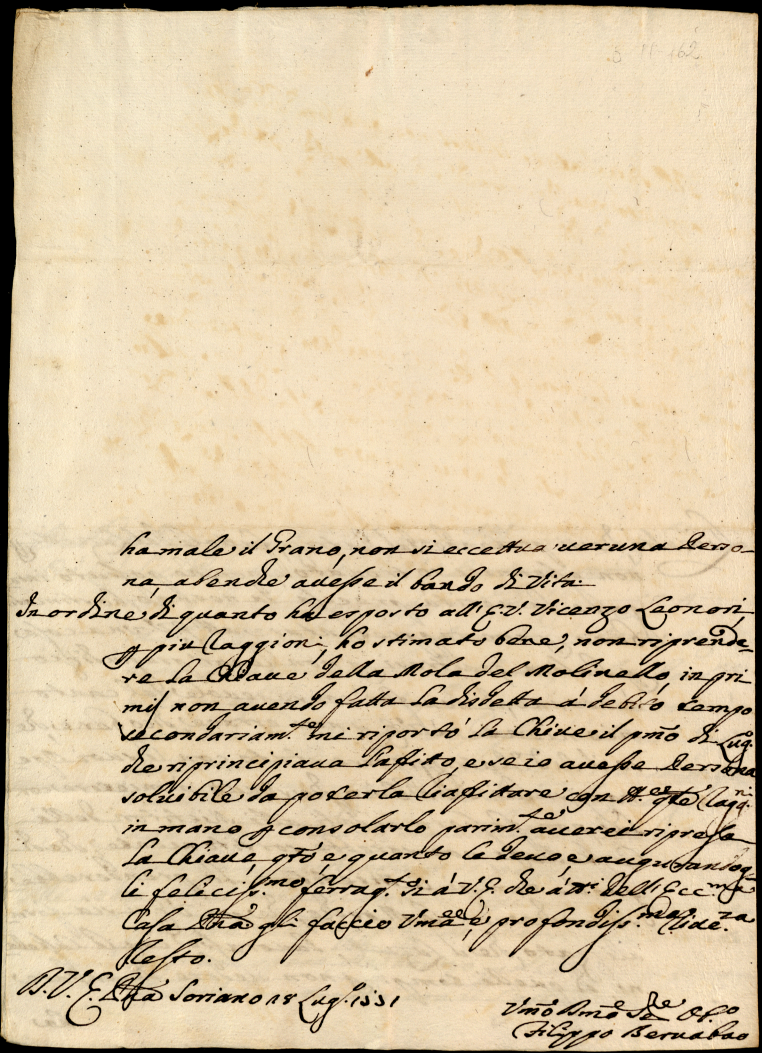 ha male il Grano, non si eccettua veruna Perso-
na, abenche avesse il bando di Vita.
In ordine di quanto ha esposto all' E.V. Vicenzo Leonori,
p più raggioni, ho stimato bene, non riprende-
re La Chiave della Mola del Molinello, in pri
mis non avendo fatta La disdetta á debito tempo
secondariam.te mi riportó La Chiave il pmo di Lug.
che riprincipiava L'affitto, e se io avesse Persona
solvibile da poterla riaffittare con tt.e qte ragg.ni
in mano p consolarlo parim.te averei ripresa
La Chiave, qto é quanto le devo, e augurandog
li feliciss.mo ferrag.to si á V.E. che á tti dell' Ecc.ma
Casa gli faccio Vma, e profondiss.ma Rive.za
Resto.
D. V. E. Soriano 18 Lug.o 1731
Vmo Dmo Se Ob.o
Filippo